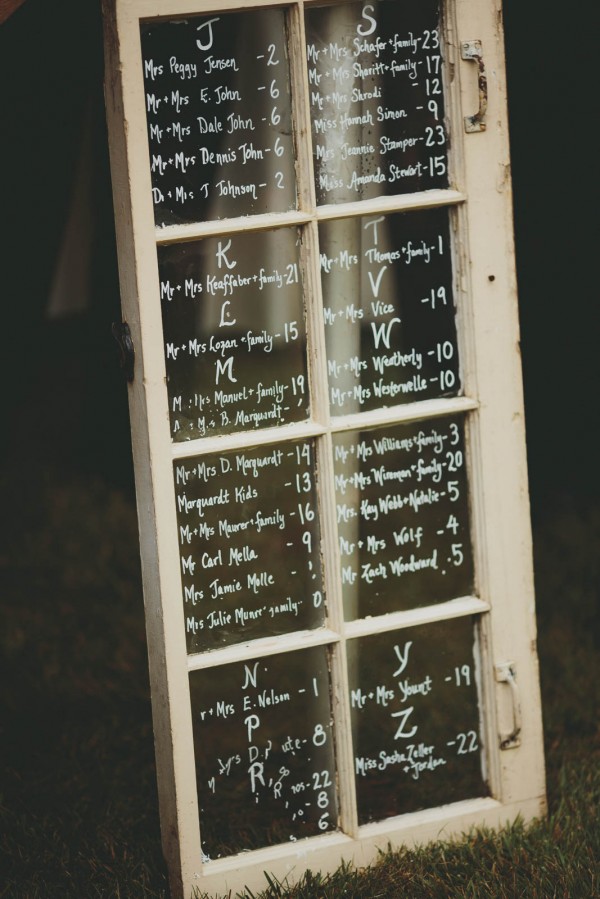 J
Mrs Peggy Jensen - 2
Mr + Mrs E. John - 6
Mr + Mrs Dale John - 6
Mr + Mrs Dennis John - 6
Dr + Mrs J Johnson - 2
K
Mr + Mrs Keaffaber + family - 21
L
Mr + Mrs Lozan + family - 15
M
Mrs Manuel + family - 19
B. Marquardt -
Mr + Mrs D. Marquardt - 14
Marquardt Kids - 13
Mr + Mrs Maurer + family - 16
Mr Carl Mella - 9
Mrs Jamie Molle -
Mrs Julie family
N
r + Mrs E. Nelson - 1
P
- 8
R
- 22
- 8
6
S
Mr + Mrs Schafer + family - 23
Mr + Mrs Shoritt + family - 17
Mr + Mrs Shrodi - 12
Miss Hannah Simon - 9
Mrs Jeannie Stamper - 23
Miss Amanda Stewart - 15
T
Mr + Mrs Thomas + family - 1
V
Mr + Mrs Vice - 19
W
Mr + Mrs Weatherly - 10
Mr + Mrs Westerwelle - 10
Mr + Mrs Williams + family - 3
Mr + Mrs Wireman + family - 20
Mrs. Kay Webb + Natalie - 5
Mr + Mrs Wolf - 4
Mr Zach Woodward - 5
Y
Mr + Mrs Yount - 19
Z
Miss Sasha Zeller - 22
+ Jordan